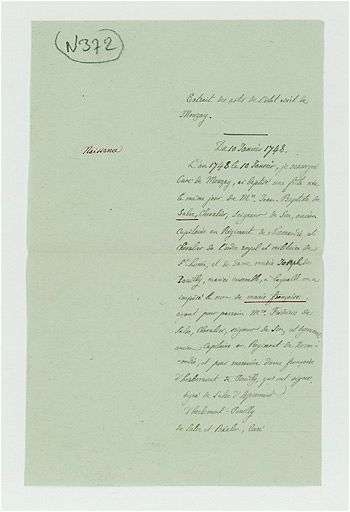 N372
Extrait des actes de l'état civil de
Mouzay.
Naissance
Du 10 Janvier 1748.
L'an 1748 le 10 Janvier, je soussigné
Curé de Mouzay, ai baptisé une fille née
le même jour de Mre. Jean Baptiste de
Sales, Chevalier, Seigneur de Sen, ancien
Capitaine en Régiment de Normandie et
Chevalier de l'ordre royal et militaire de
St. Louis, et de Dame marie Joseph de
Pouilly, mariés ensemble, à laquelle on a
imposé le nom de marie françoise,
ayant pour parrain Mre. Frédéric de
Sales, Chevalier, seigneur de Sen, et
ancien Capitaine en Régiment de Norm-
andie, et pour marraine dame françoise
d'herbemont de Pouilly, qui ont signé,
signé de Sales d'Apremont
d'herbemont-Pouilly
de Sales et Curé.